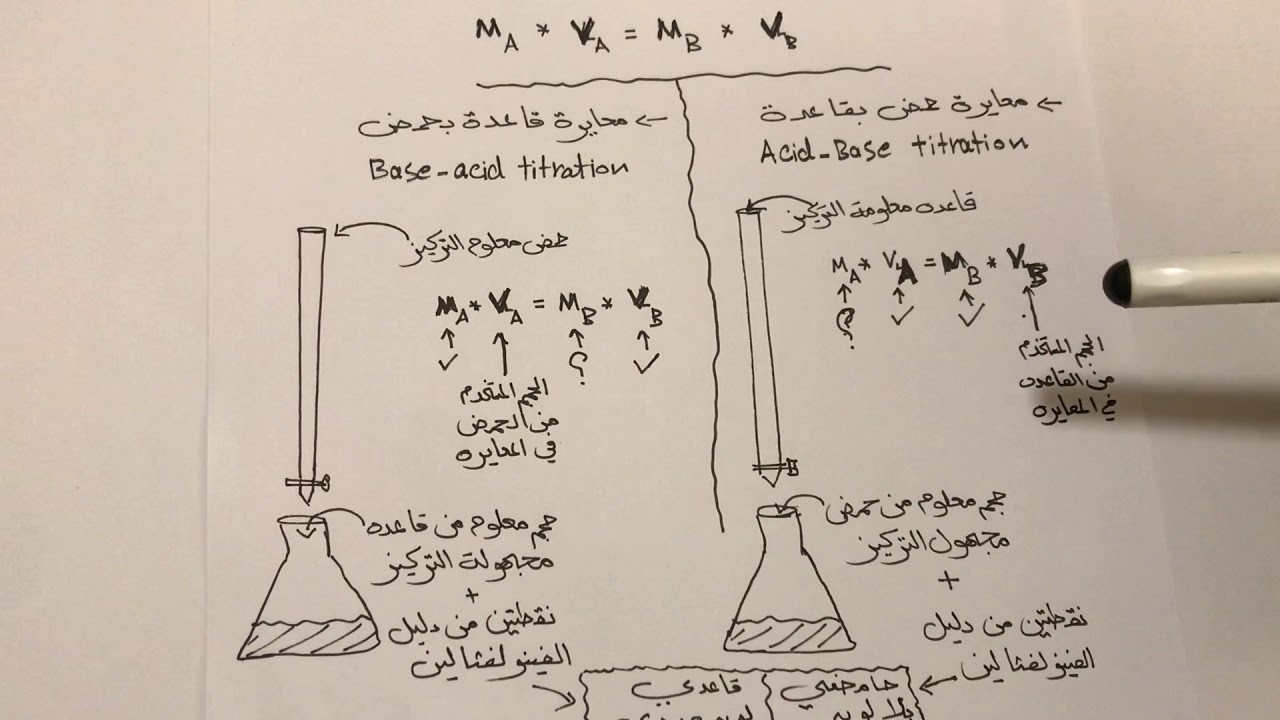 M_A * V_A = M_B * V_B
← معايرة حمض بقاعدة
Acid-Base titration
قاعده معلومة التركيز
M_A * V_A = M_B * V_B
؟ ✓ ✓
الحجم المستخدم
من القاعده
في المعايره
حجم معلوم من حمض
مجهول التركيز
+
نقطتين من دليل
الفينولفثالين
← معايرة قاعدة بحمض
Base-acid titration
حمض معلوم التركيز
M_A * V_A = M_B * V_B
✓ ؟ ✓
الحجم المستخدم
من الحمض
في المعايره
حجم معلوم من قاعده
مجهولة التركيز
+
نقطتين من دليل
الفينولفثالين
حامضي
بلا لون
قاعدي